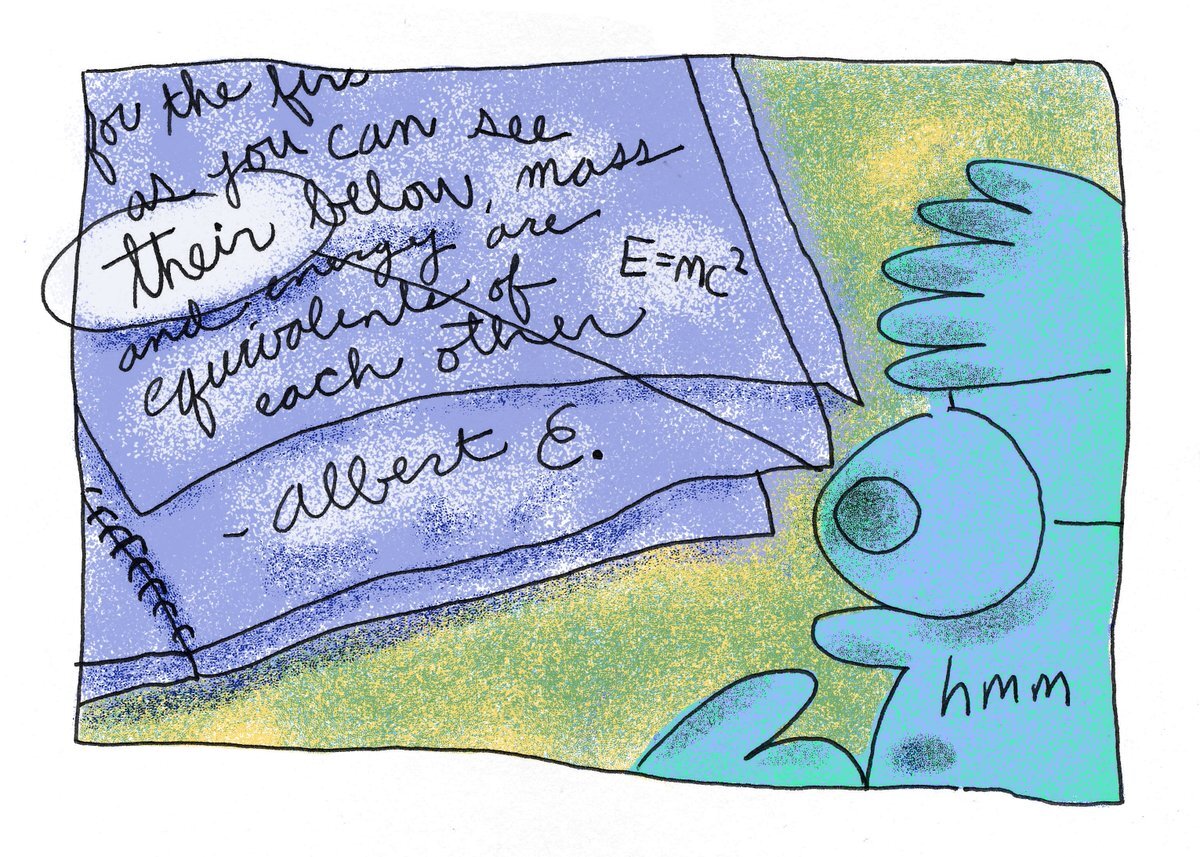 for the firs
as you can see
their below, mass
and energy are
equivalents of
each other
E=mc²
- Albert E.
hmm